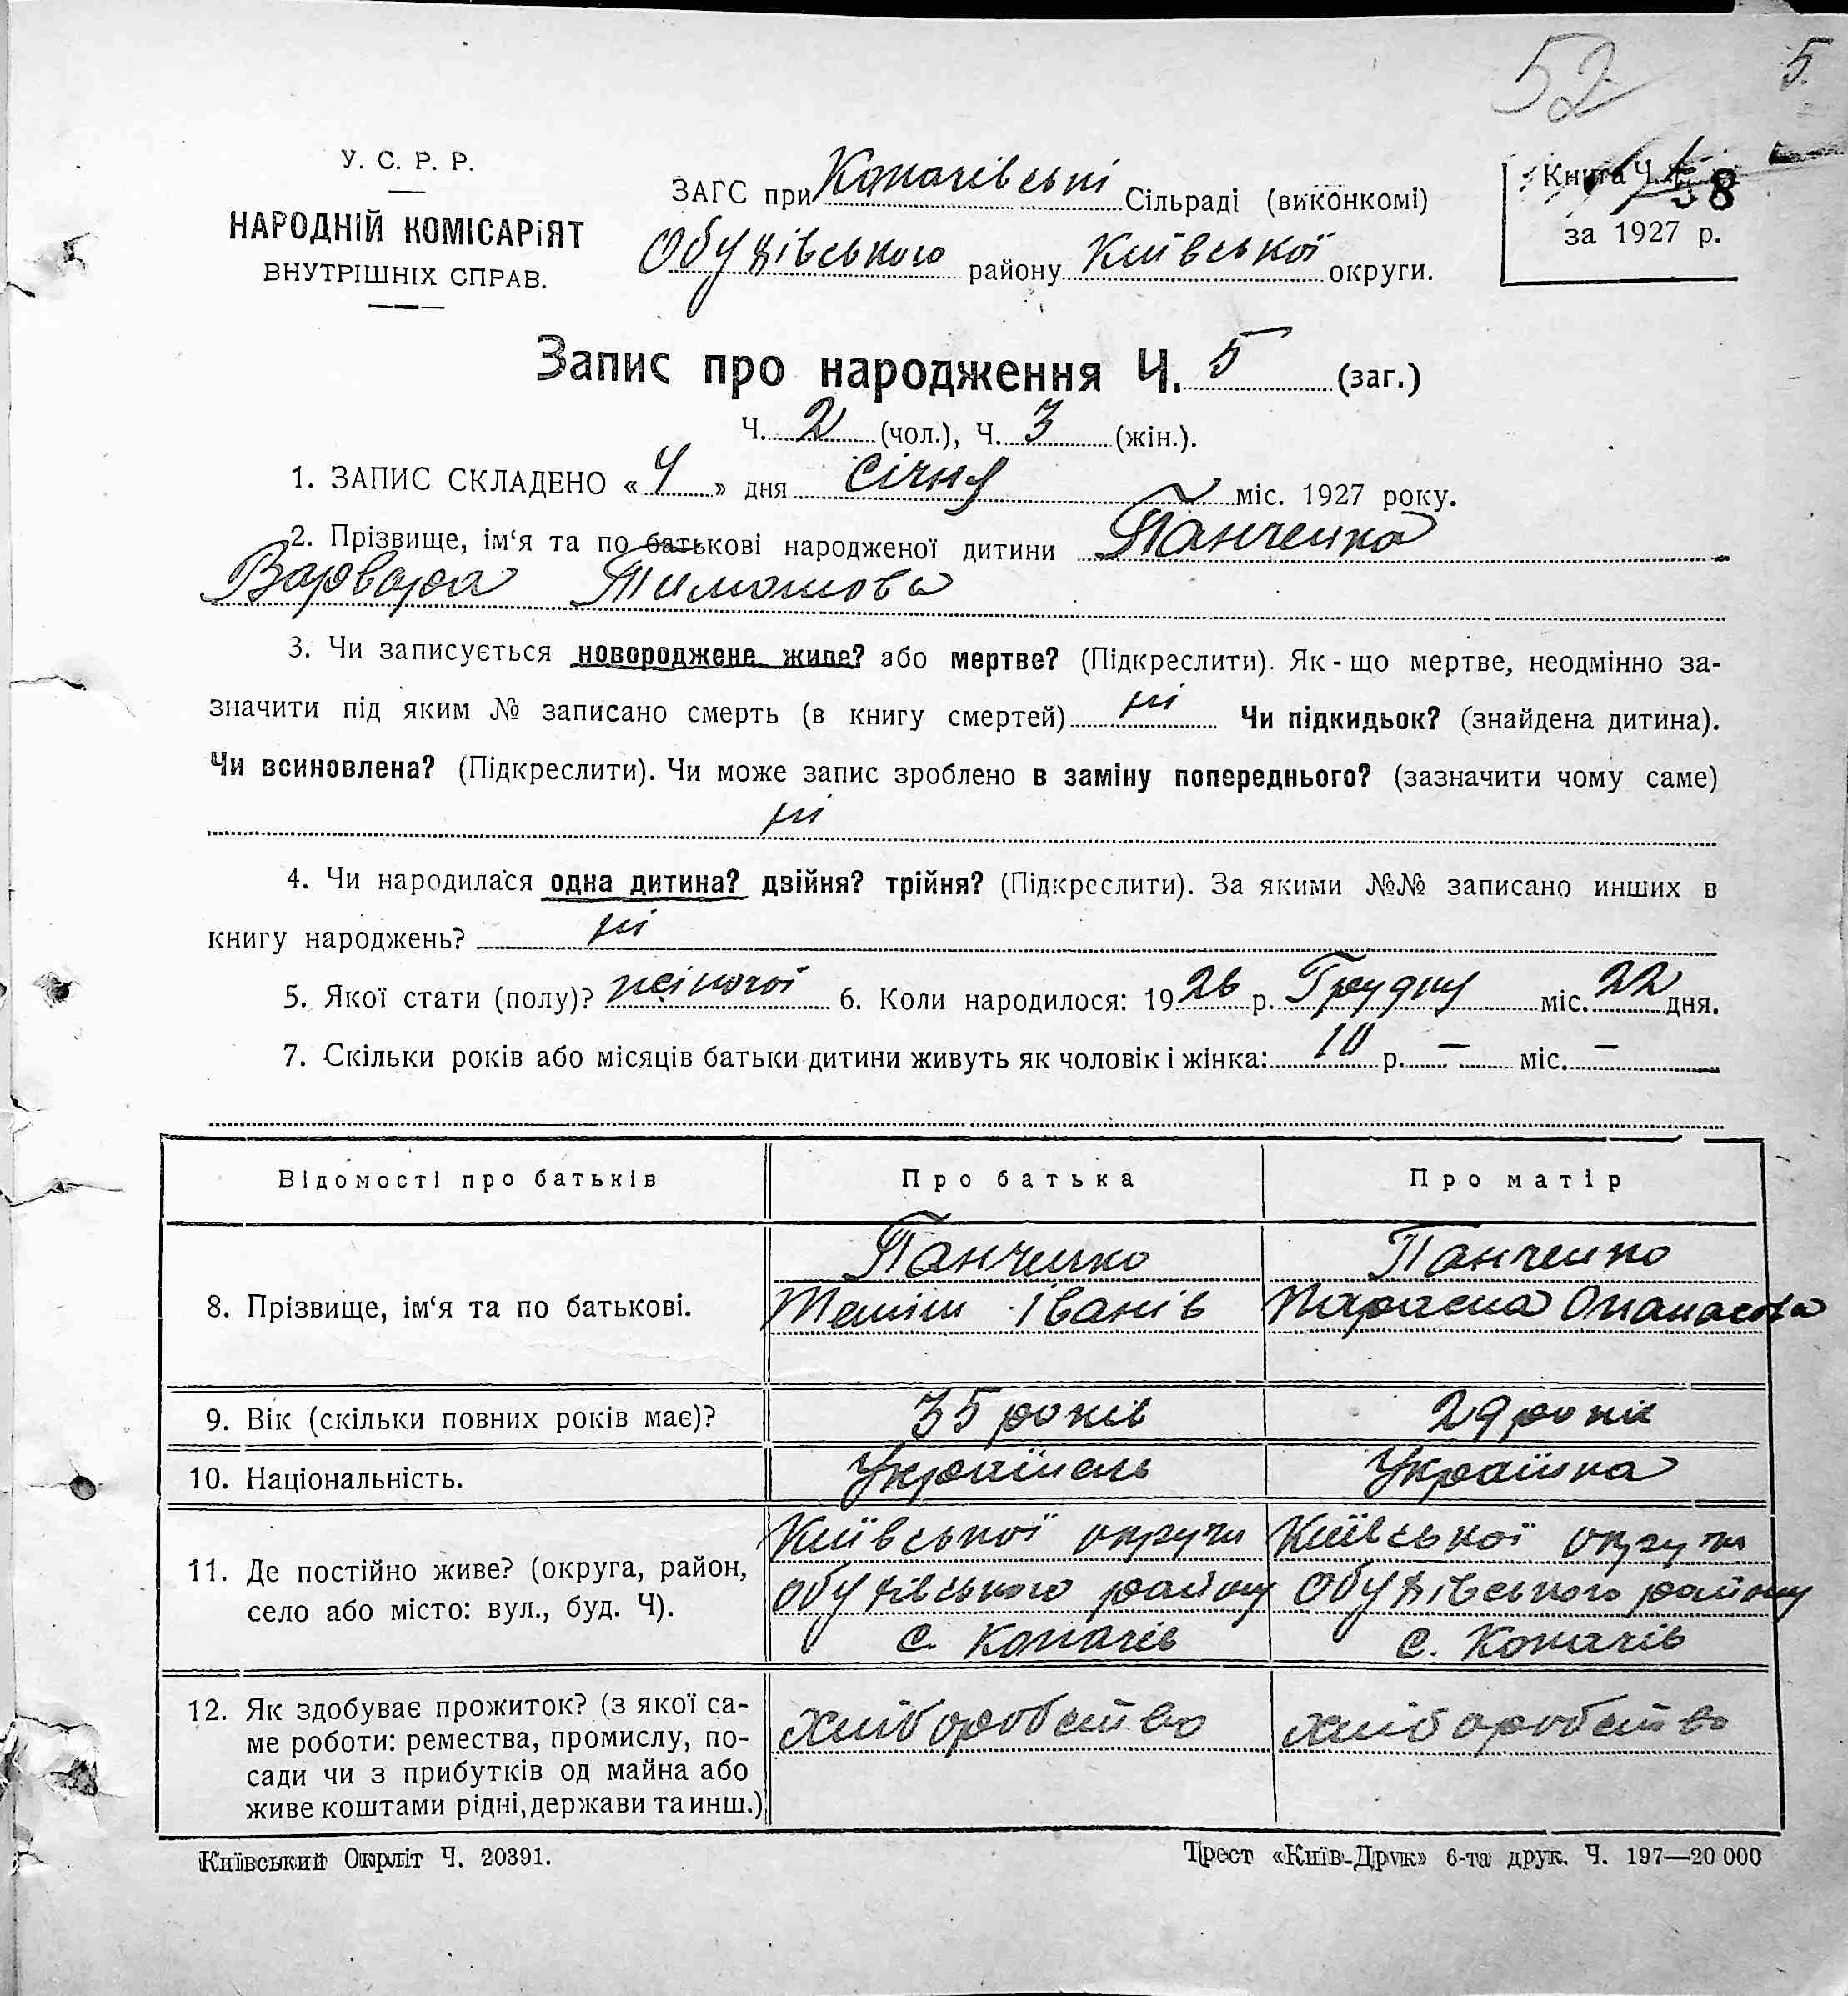 52 5.
У. С. Р. Р.
НАРОДНІЙ КОМІСАРіЯТ
ВНУТРІШНІХ СПРАВ.
ЗАГС при Копачівські Сільраді (виконкомі)
Обухівського району Київської округи.
Книга Ч. 58
за 1927 р.
Запис про народження Ч. 5 (заг.)
Ч. 2 (чол.), Ч. 3 (жін.).
1. ЗАПИС СКЛАДЕНО « 4 » дня Січня міс. 1927 року.
2. Прізвище, ім‘я та по батькові народженої дитини Панченко
Варвара Тимошова
3. Чи записується новороджене живе? або мертве? (Підкреслити). Як-що мертве, неодмінно за-
значити під яким № записано смерть (в книгу смертей) ні Чи підкидьок? (знайдена дитина).
Чи всиновлена? (Підкреслити). Чи може запис зроблено в заміну попереднього? (зазначити чому саме)
ні
4. Чи народилася одна дитина? двійня? трійня? (Підкреслити). За якими №№ записано инших в
книгу народжень? ні
5. Якої стати (полу)? жіночої 6. Коли народилося: 1926 р. Грудну міс. 22 дня.
7. Скільки років або місяців батьки дитини живуть як чоловік і жінка: 10 р. – міс. –
Відомості про батьків Про батька Про матір
8. Прізвище, ім‘я та по батькові.
Панченко
Іванів
Панченко
Параска Опанасова
9. Вік (скільки повних років має)? 35 років 29 років
10. Національність. Українець Українка
11. Де постійно живе? (округа, район,
село або місто: вул., буд. Ч).
Київської округи
Обухівського району
с. Копачів
Київської округи
Обухівського району
с. Копачів
12. Як здобуває прожиток? (з якої са-
ме роботи: ремества, промислу, по-
сади чи з прибутків од майна або
живе коштами рідні, держави та инш.)
хліборобство
хліборобство
Київський Окрліт Ч. 20391.
Трест «Київ-Друк» 6-та друк. Ч. 197—20 000